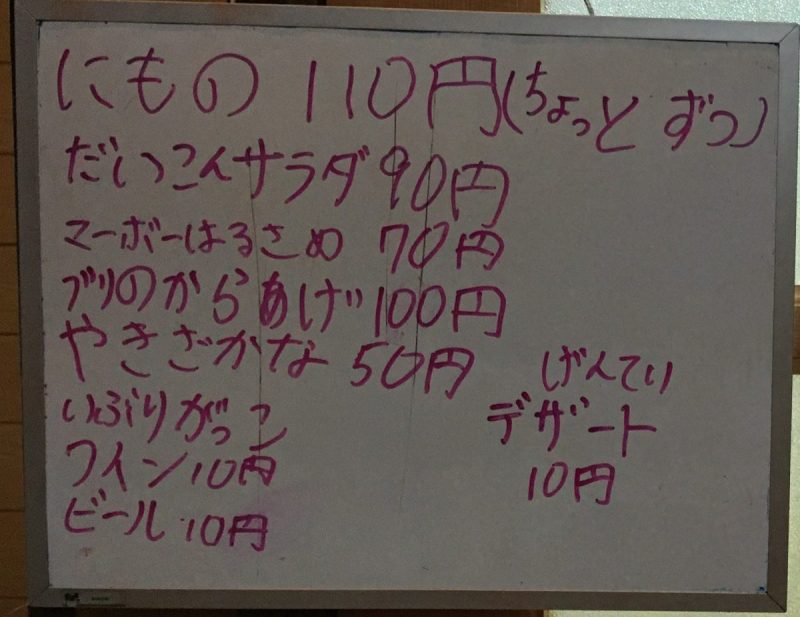 にもの 110円(ちょっと ずつ)
だいこんサラダ 90円
マーボーはるさめ 70円
ブリのからあげ 100円
やきざかな 50円
いぶりがっこ
ワイン 10円
ビール 10円
げんてい
デザート
10円